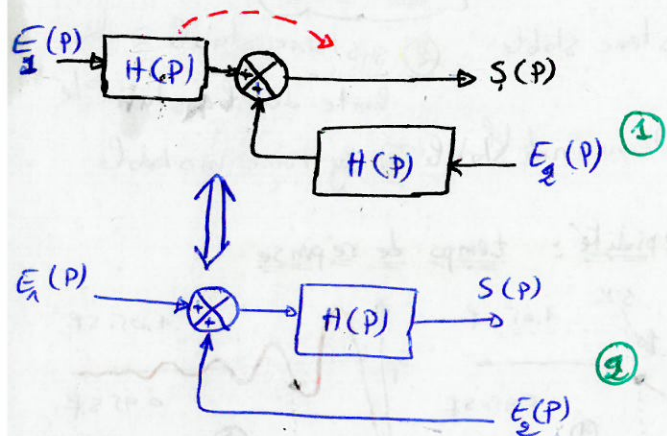 E1(P) H(P) + + S(P)
H(P) E2(P) 1
E1(P) + + H(P) S(P)
2
E2(P)